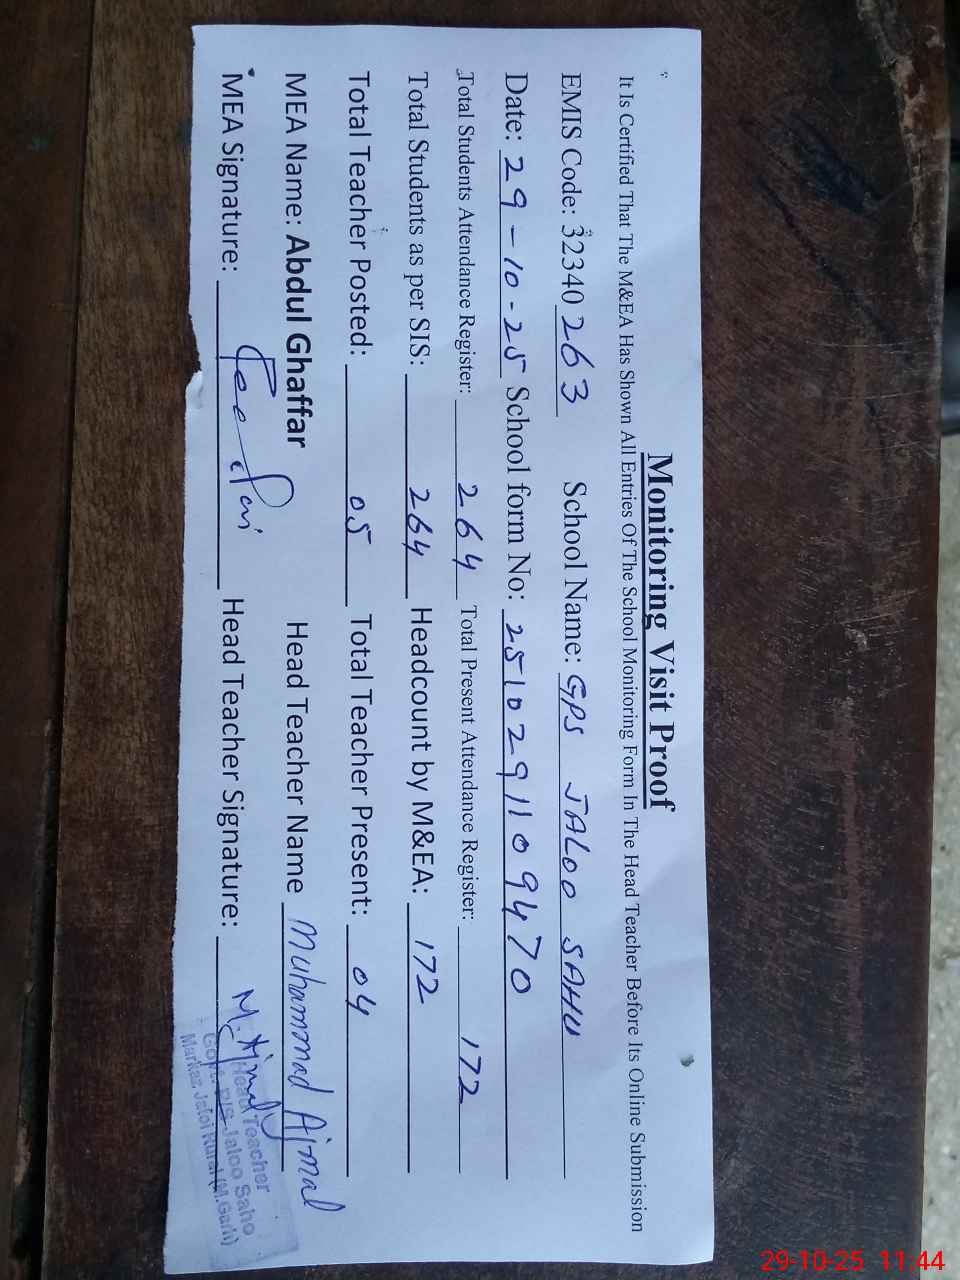 Monitoring Visit Proof
It Is Certified That The M&EA Has Shown All Entries Of The School Monitoring Form In The Head Teacher Before Its Online Submission
EMIS Code: 32340 263 School Name: GPS JALOO SAHU
Date: 29-10-25 School form No: 2510291109470
Total Students Attendance Register: 264 Total Present Attendance Register: 172
Total Students as per SIS: 264 Headcount by M&EA: 172
Total Teacher Posted: 05 Total Teacher Present: 04
MEA Name: Abdul Ghaffar Head Teacher Name Muhammad Ajmal
MEA Signature: Head Teacher Signature: M. Ajmal
Head Teacher
Govt. P/S Jaloo Saho
Markaz Jatoi Rural (M.Garh)
29-10-25 11:44